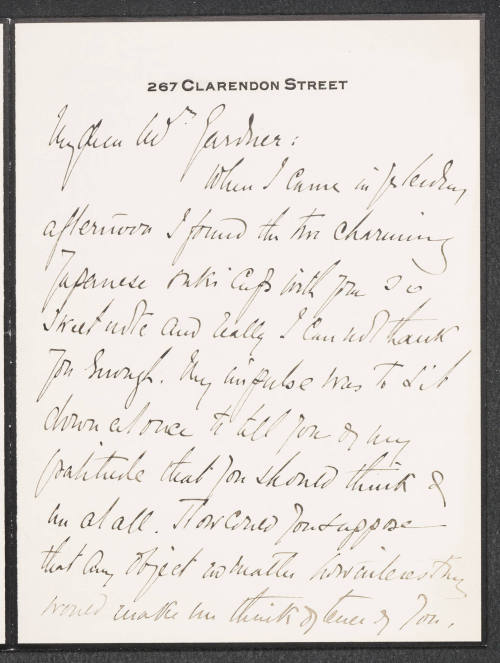 267 CLARENDON STREET
My dear Mrs Gardner:
When I came in yesterday
afternoon I found the two charming
Japanese saki cups with your
sweet note and really I can not thank
you enough. My impulse was to sit
down at once to tell you of my
gratitude that you should think of
me at all. How could you suppose
that any object no matter how interesting
would make me think oftener of you.